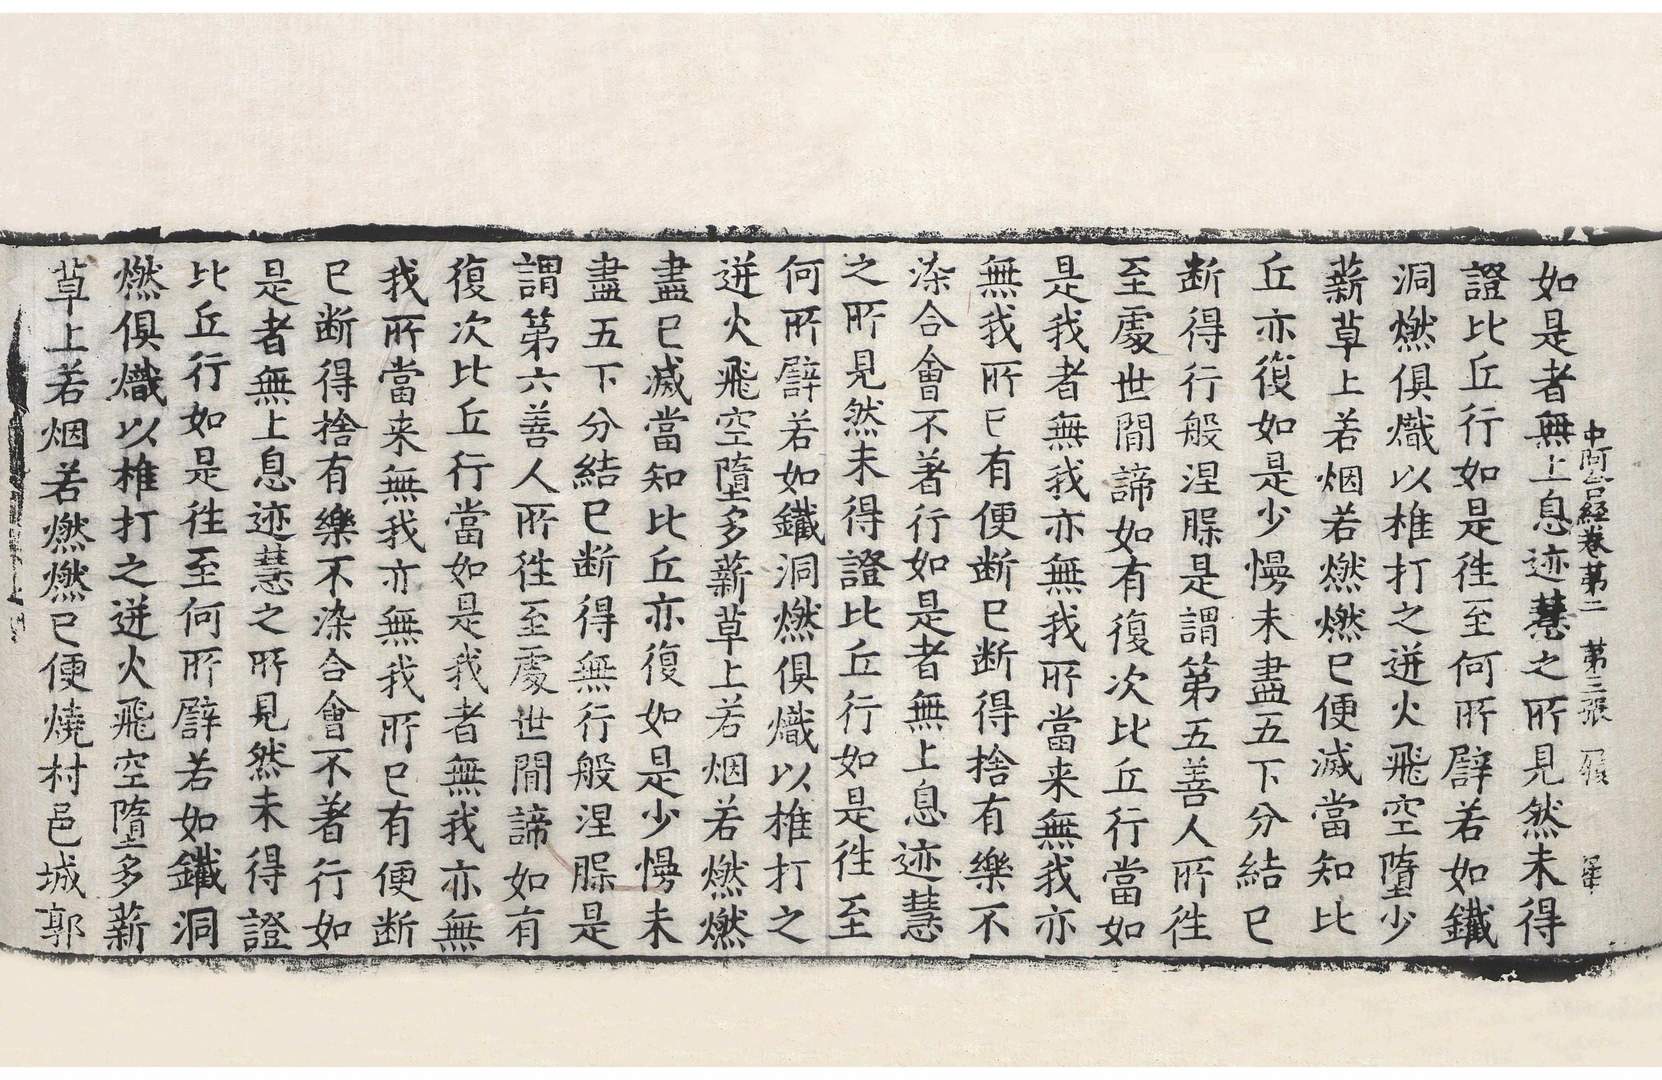 中阿含經卷第二　第三張
如是者無上息迹慧之所見然未得
證比丘行如是徃至何所譬若如鐵
洞燃俱熾以椎打之迸火飛空墮少
薪草上若烟若燃燃已便滅當知比
丘亦復如是少慢未盡五下分結已
断得行般涅槃是謂第五善人所徃
至處世間諦如有復次比丘行當如
是我者無我亦無我所當来無我亦
無我所已有便断已断得捨有樂不
染合會不著行如是者無上息迹慧
之所見然未得證比丘行如是徃至
何所譬若如鐵洞燃俱熾以椎打之
迸火飛空墮多薪草上若烟若燃燃
盡已滅當知比丘亦復如是少慢未
盡五下分結已断得無行般涅槃是
謂第六善人所徃至處世間諦如有
復次比丘行當如是我者無我亦無
我所當来無我亦無我所已有便断
已断得捨有樂不染合會不著行如
是者無上息迹慧之所見然未得證
比丘行如是徃至何所譬若如鐵洞
燃俱熾以椎打之迸火飛空墮多薪
草上若烟若燃燃已便燒村邑城郭